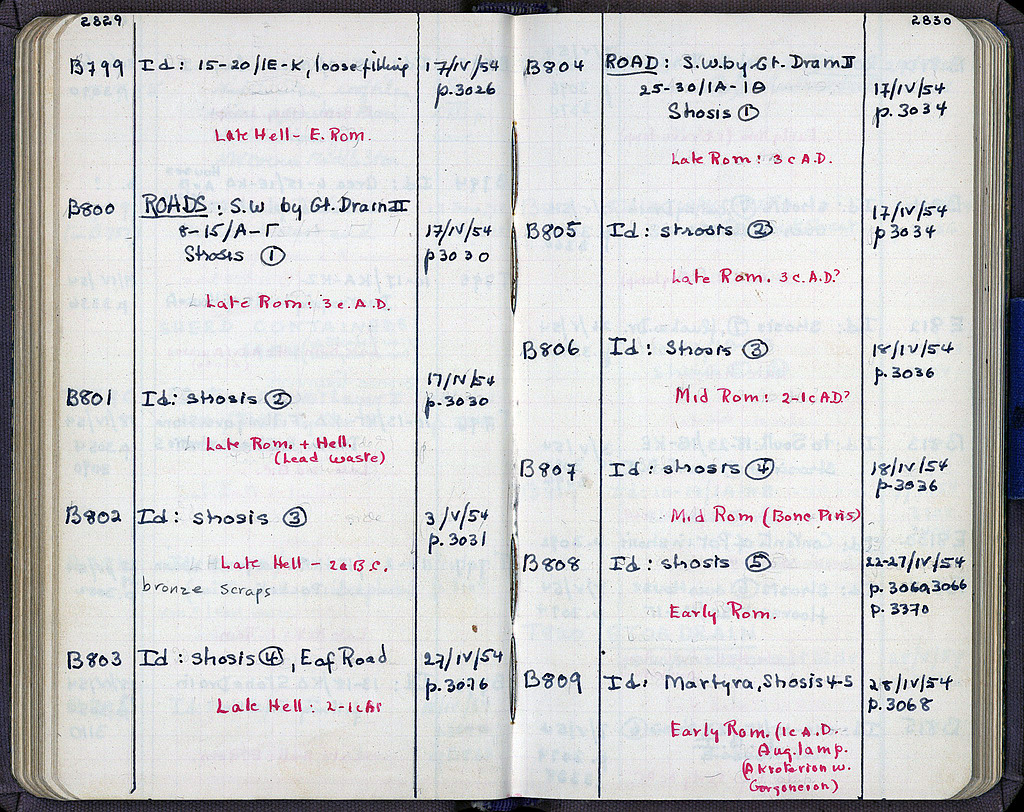 2829
B799 Id: 15-20/IE-K, loosefilling 17/IV/54
p.3026
Late Hell - E. Rom.
B800 ROADS: S.W by Gt. Drain II
8-15/A-Γ 17/IV/54
Strosis ① p3030
Late Rom: 3 c. A.D.
17/IV/54
B801 Id: strosis ② p.3030
Late Rom. + Hell.
(Lead waste)
B802 Id: strosis ③ 3/V/54
p.3031
Late Hell - 2 B.C.
bronze scraps
B803 Id: strosis ④, E of Road 27/IV/54
p.3076
Late Hell: 2-1c
2830
B804 ROAD: S.W. by Gt. Drain II
25-30/IA-IΘ 17/IV/54
Strosis ① p.3034
Late Rom: 3 c A.D.
17/IV/54
B805 Id: strosis ② p3034
Late Rom. 3 c. A.D?
B806 Id: strosis ③ 18/IV/54
p.3036
Mid Rom: 2-1c AD?
B807 Id: strosis ④ 18/IV/54
p.3036
Mid Rom (Bone Pins)
B808 Id: strosis ⑤ 22-27/IV/54
p.3060,3066
Early Rom. p.3370
B809 Id: Martyra, Strosis 4-5 28/IV/54
p.3068
Early Rom. (1c A.D.
Aug. lamp.
(Akroterion w.
Gorgoneion)